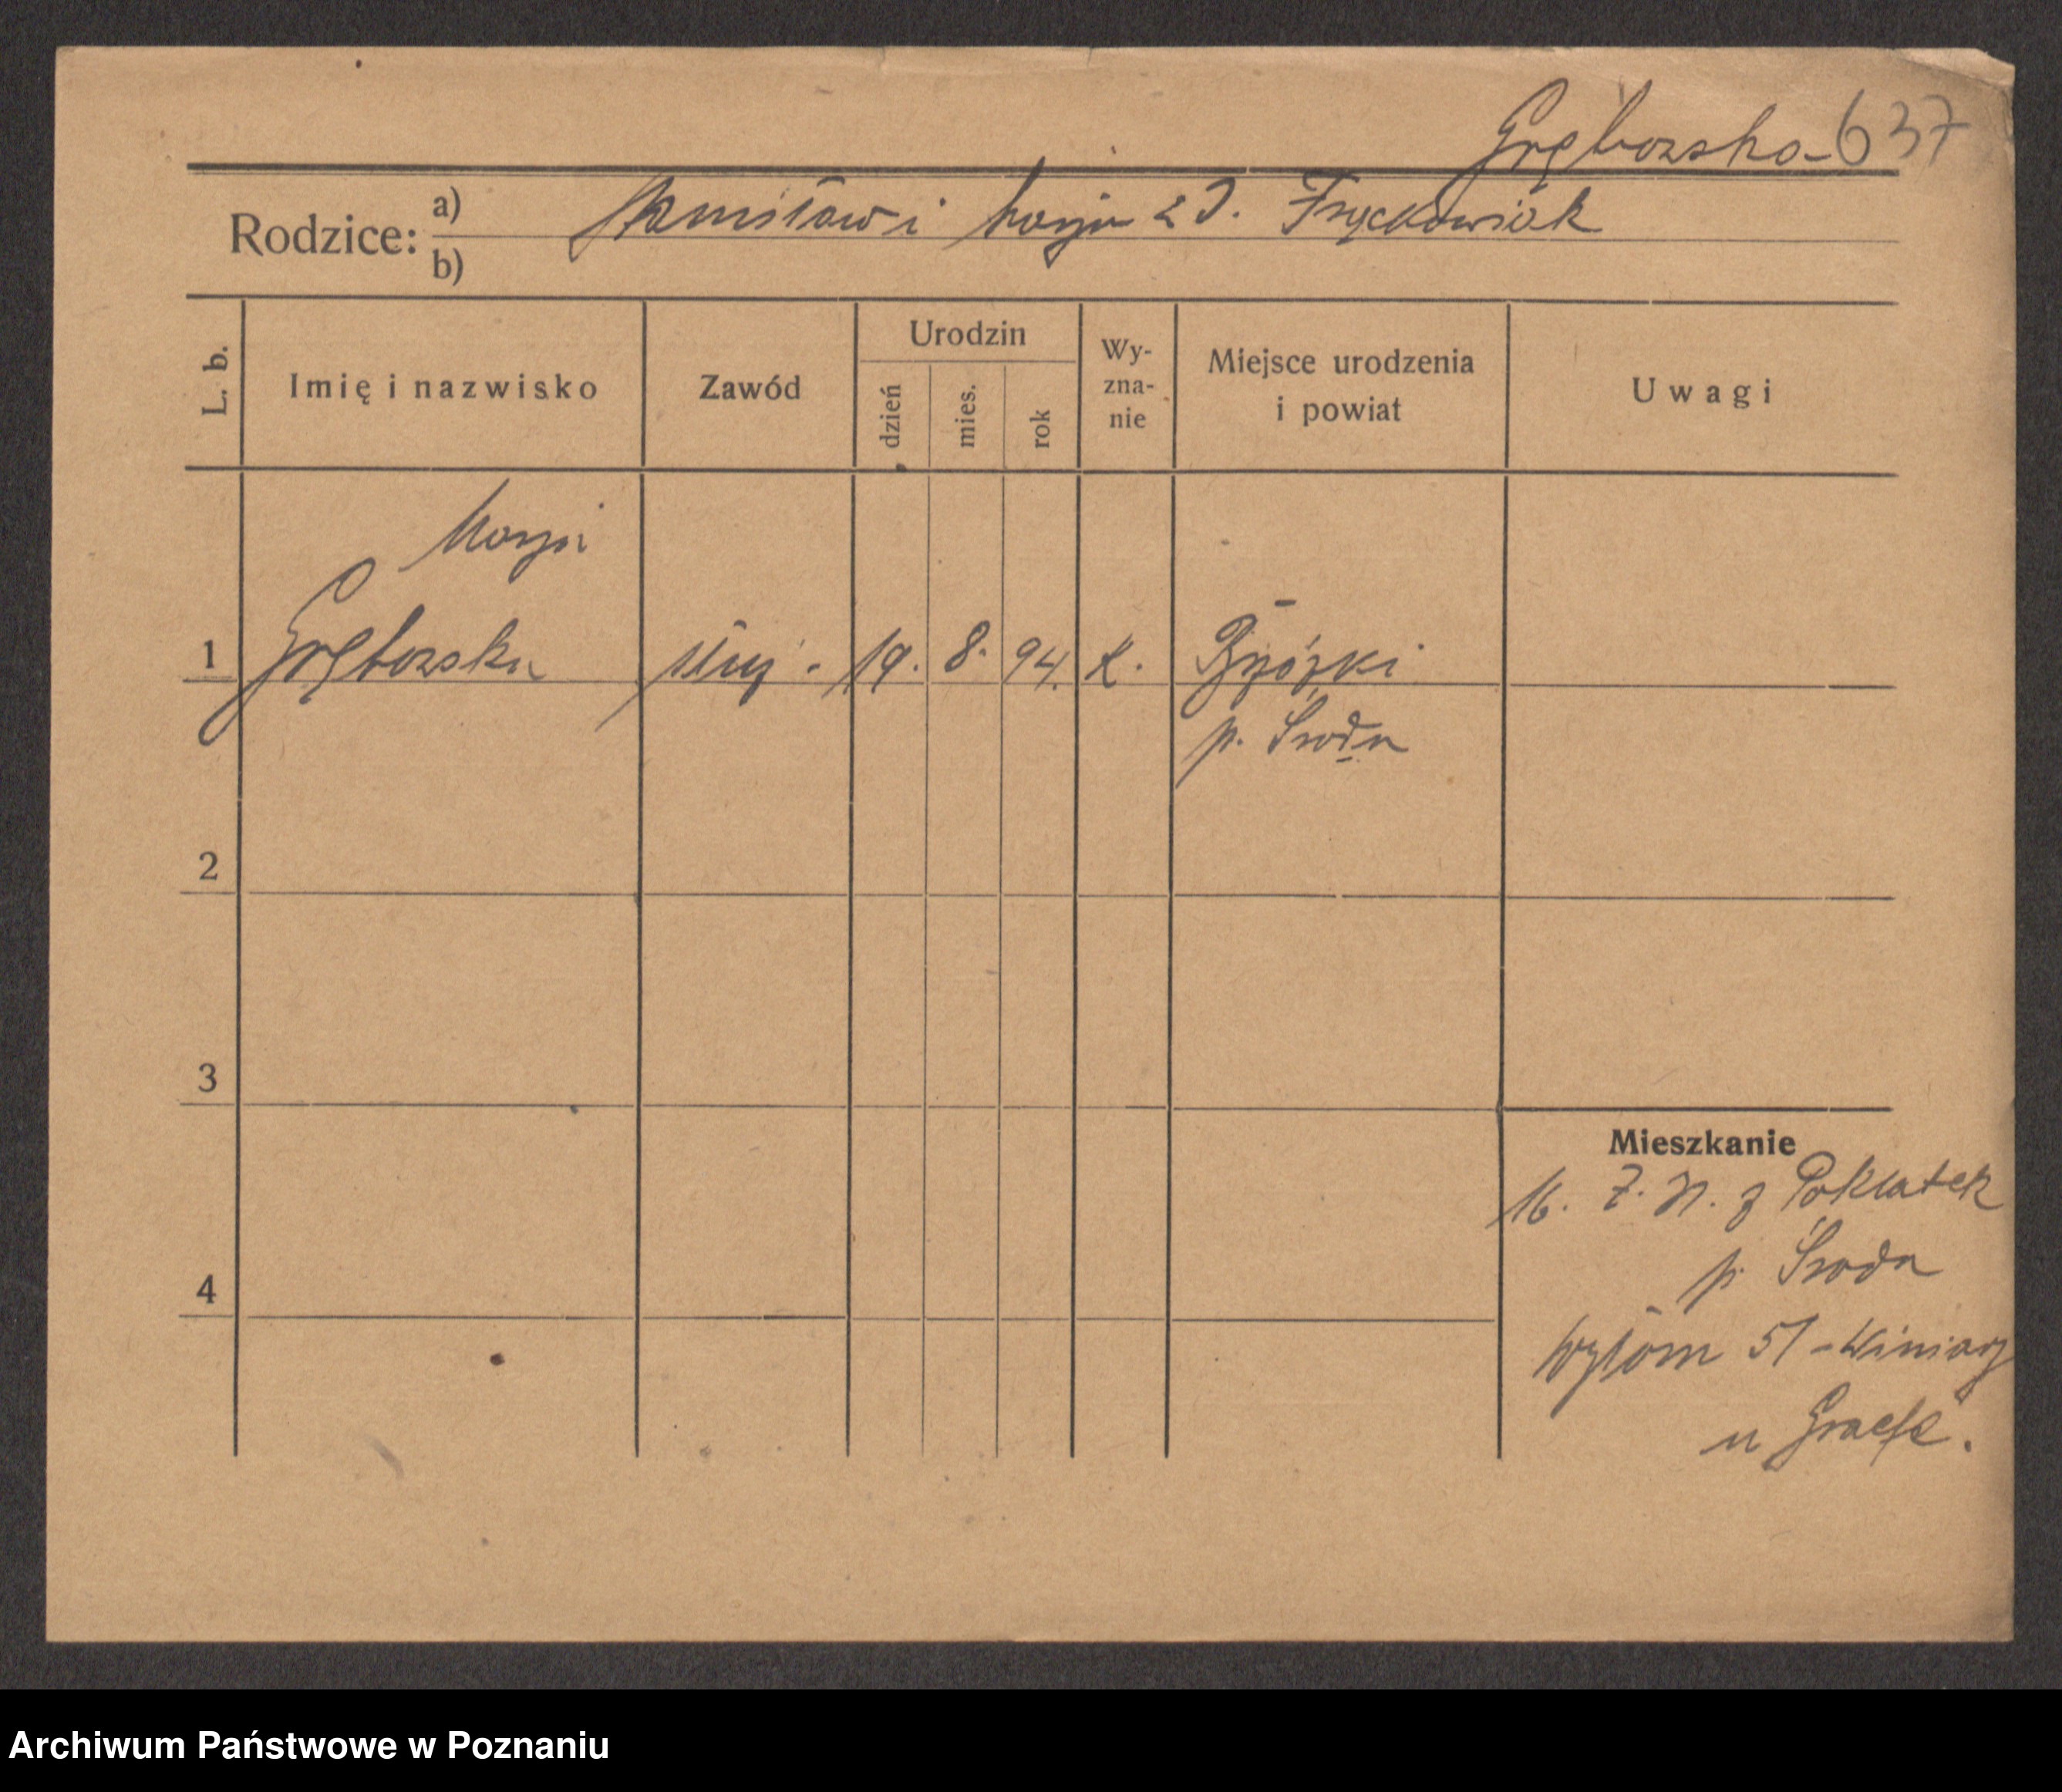 Grębozska - 637
Rodzice: a) Stanisław i Marja z d. Frąckowiak
b)
L. b.
Imię i nazwisko
Zawód
Urodzin
dzień
mies.
rok
Wy-
zna-
nie
Miejsce urodzenia
i powiat
Uwagi
Marja
1 Grębozska służ. 19. 8. 94. k.
p. Środa
2
3
4
Mieszkanie
16. 7. z Pokłatek
p. Środa
Wyłom 51 - Winiary
u Graefe.
Archiwum Państwowe w Poznaniu